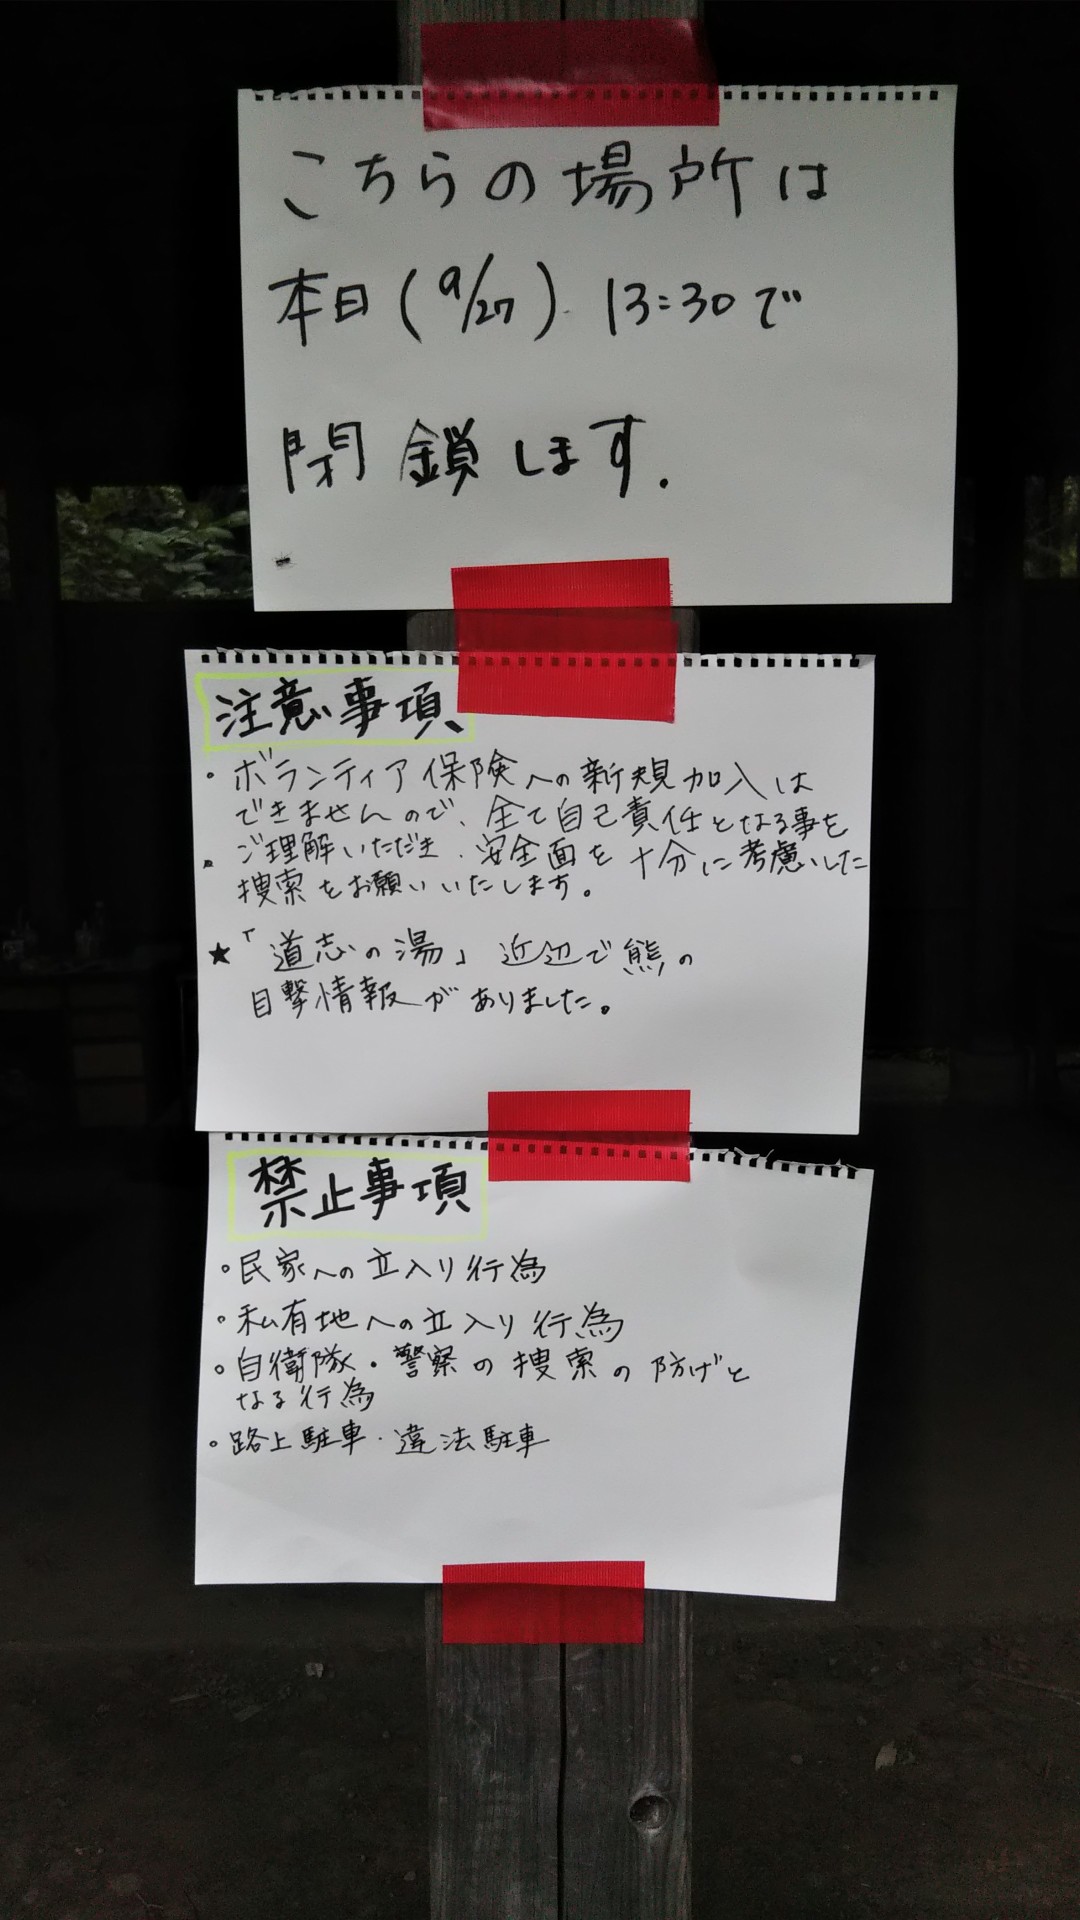 こちらの場所は
本日(9/27) 13:30で
閉鎖します.
注意事項
・ボランティア保険への新規加入は
できませんので、全て自己責任となる事を
ご理解いただき、安全面を十分に考慮いした
捜索をお願いいたします。
★「道志の湯」近辺で熊の
目撃情報がありました。
禁止事項
・民家への立入り行為
・私有地への立入り行為
・自衛隊・警察の捜索の防げと
なる行為
・路上駐車・違法駐車